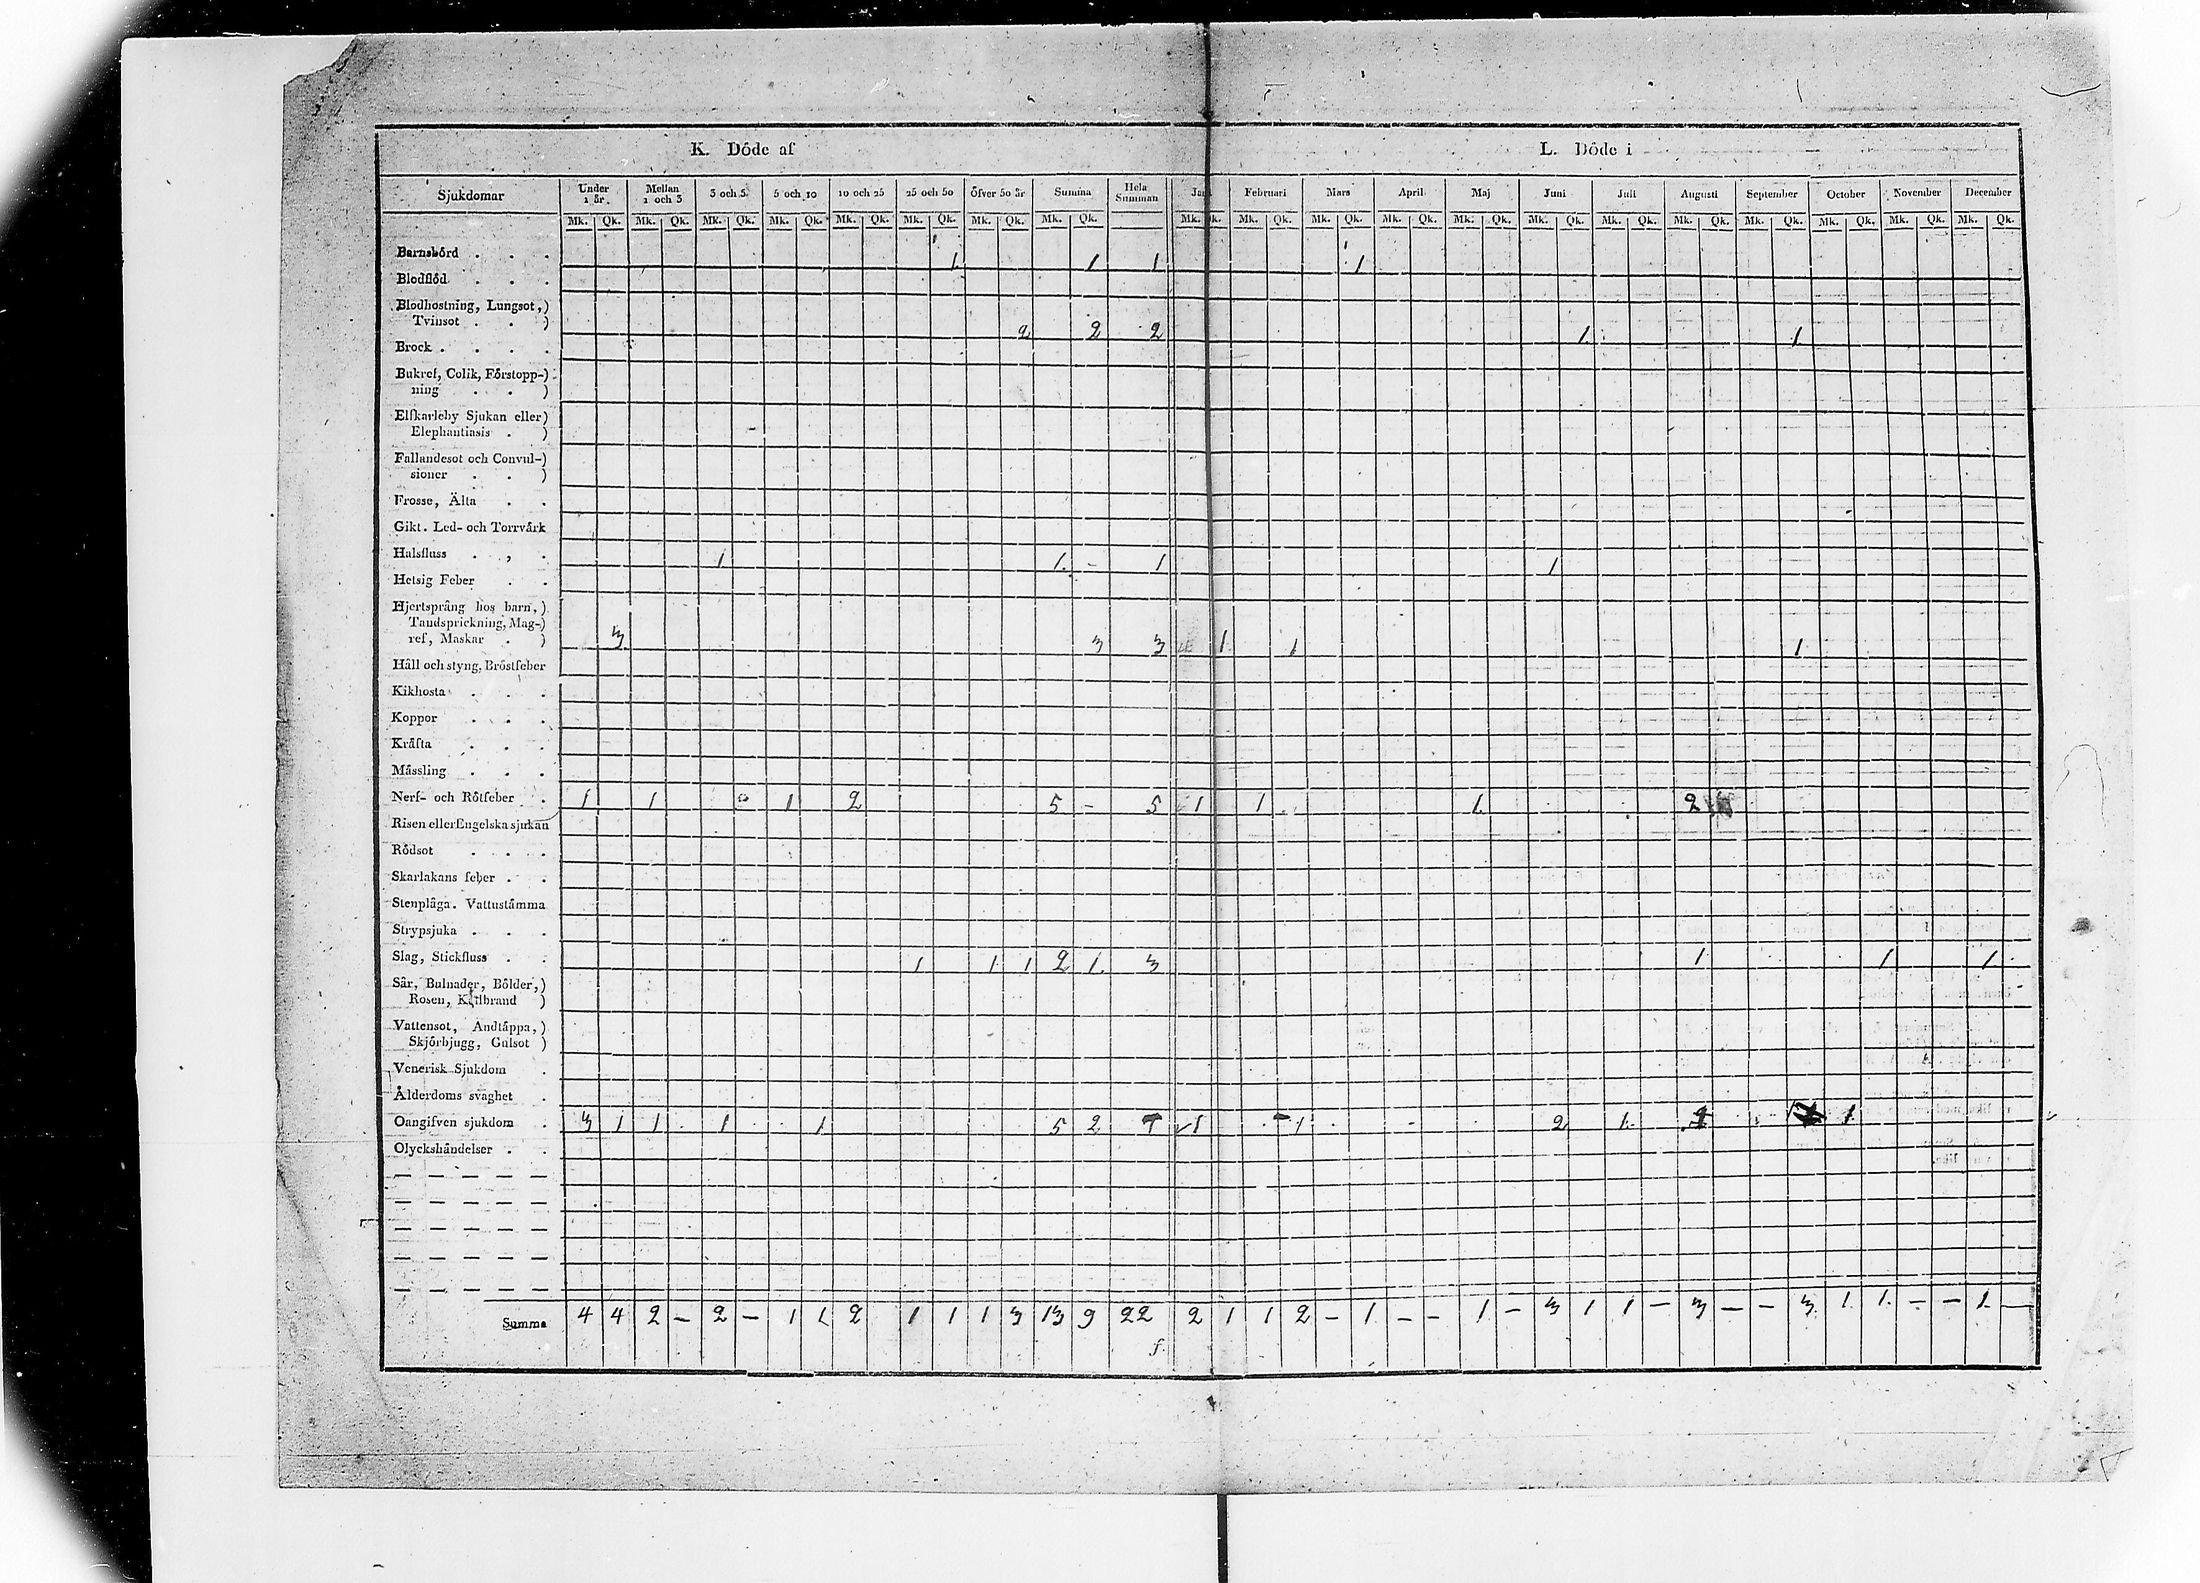 K. Döde af
L. Döde i
Sjukdomar Under 1 år. Mellan 1 och 3 3 och 5 5 och 10 10 och 25 25 och 50 Öfver 50 år Summa Hela Summan Januari Februari Mars April Maj Juni Juli Augusti September October November December
Mk. Qk. Mk. Qk. Mk. Qk. Mk. Qk. Mk. Qk. Mk. Qk. Mk. Qk. Mk. Qk. Mk. Qk. Mk. Qk. Mk. Qk. Mk. Qk. Mk. Qk. Mk. Qk. Mk. Qk. Mk. Qk. Mk. Qk. Mk. Qk. Mk. Qk. Mk. Qk.
Barnsbörd . . . 1 1 1 1
Blodflöd . . .
Blodhostning, Lungsot,)
Tvinsot . . ) 2 2 2 1 1
Brock . . . .
Bukref, Colik, Förstopp-)
ning . . )
Elfkarleby Sjukan eller)
Elephantiasis . )
Fallandesot och Convul-)
sioner . . )
Frosse, Älta . .
Gikt. Led- och Torrvärk
Halsfluss . , . 1 1 - 1 1
Hetsig Feber . .
Hjertsprång hos barn,)
Tandsprickning, Mag-)
ref, Maskar . ) 3 3 3 1 1 1
Håll och styng, Bröstfeber
Kikhosta . . .
Koppor . . .
Kräfta . . .
Mässling . . .
Nerf- och Rötfeber . 1 1 1 2 5 - 5 1 1 1 2
Risen eller Engelska sjukan
Rödsot . . .
Skarlakans feber . .
Stenplåga. Vattustämma
Strypsjuka . . .
Slag, Stickfluss . . 1 1 1 2 1 3 1 1 1
Sår, Bulnader, Bölder,)
Rosen, Kallbrand )
Vattensot, Andtäppa,)
Skjörbjugg, Gulsot )
Venerisk Sjukdom .
Ålderdoms svaghet .
Oangifven sjukdom . 3 1 1 1 1 5 2 7 1 1 2 1 1
Olyckshändelser . .
Summa 4 4 2 - 2 - 1 1 2 1 1 1 3 13 9 22 2 1 1 2 - 1 - - 1 - 3 1 1 - 3 - - 3 1 1 - - 1 -